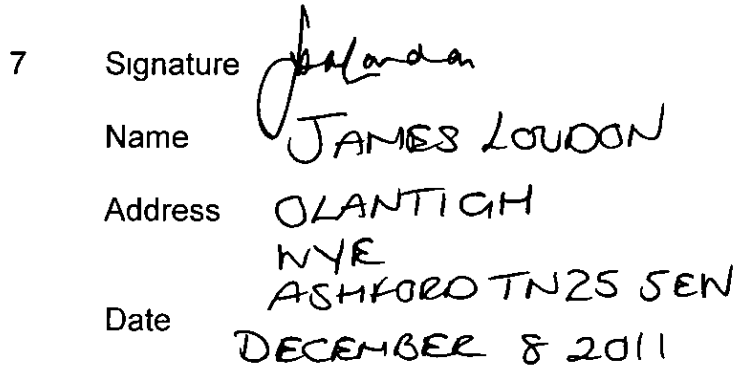 7 Signature
Name JAMES LOUDON
Address OLANTIGH
WYE
ASHFORD TN25 5EW
Date
DECEMBER 8 2011